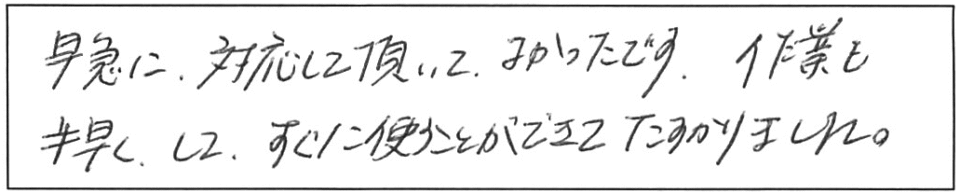 早急に、対応して頂いて、よかったです。作業も
手早く、して、すぐに使うことができてたすかりました。